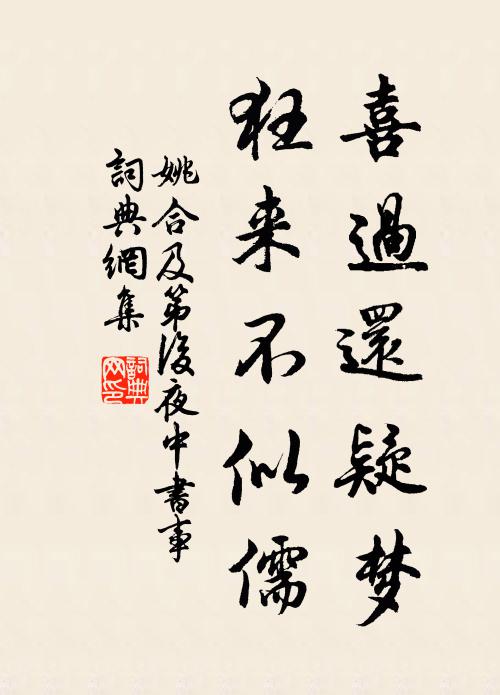 喜過還疑梦
狂来不似儒
姚合及第後夜中書事
詞典網集
詞典网印